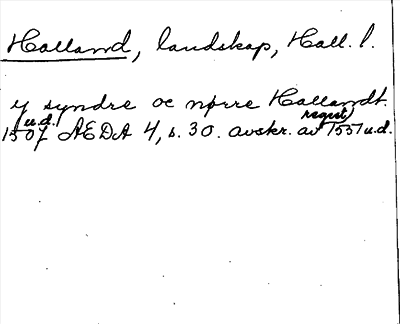 Halland, landskap, Hall. l.
y syndre oc nørre Hallandt.
u.d. regist)
1507 AEDA 4, s. 30. avskr. av 1551 u.d.